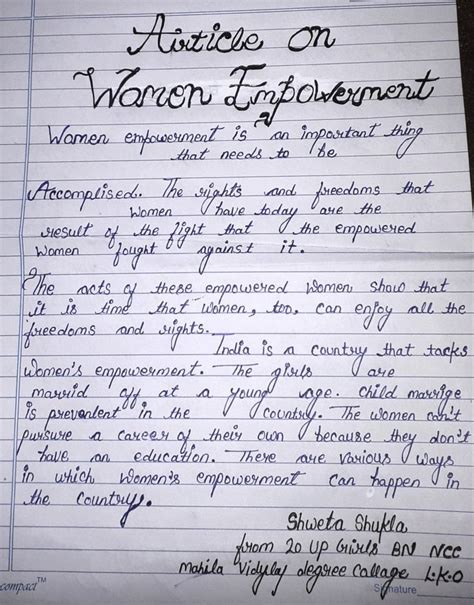 Article on
Women Empowerment
Women empowerment is an important thing
that needs to be
Accomplised. The rights and freedoms that
Women have today are the
result of the fight that the empowered
Women fought against it.
The acts of these empowered women show that
it is time that women, too, can enjoy all the
freedoms and rights.
India is a country that tacks
Women's empowerment. The girls are
marrid off at a young age. Child marrige
is prevenlent in the country. The women can't
pursure a career of their own because they don't
have an education. There are various ways
in which Women's empowerment can happen in
the Country.
Shweta Shukla
from 20 UP Girls BN NCC
mahila Vidylay degree Callage L.K.O
compact™ Signature